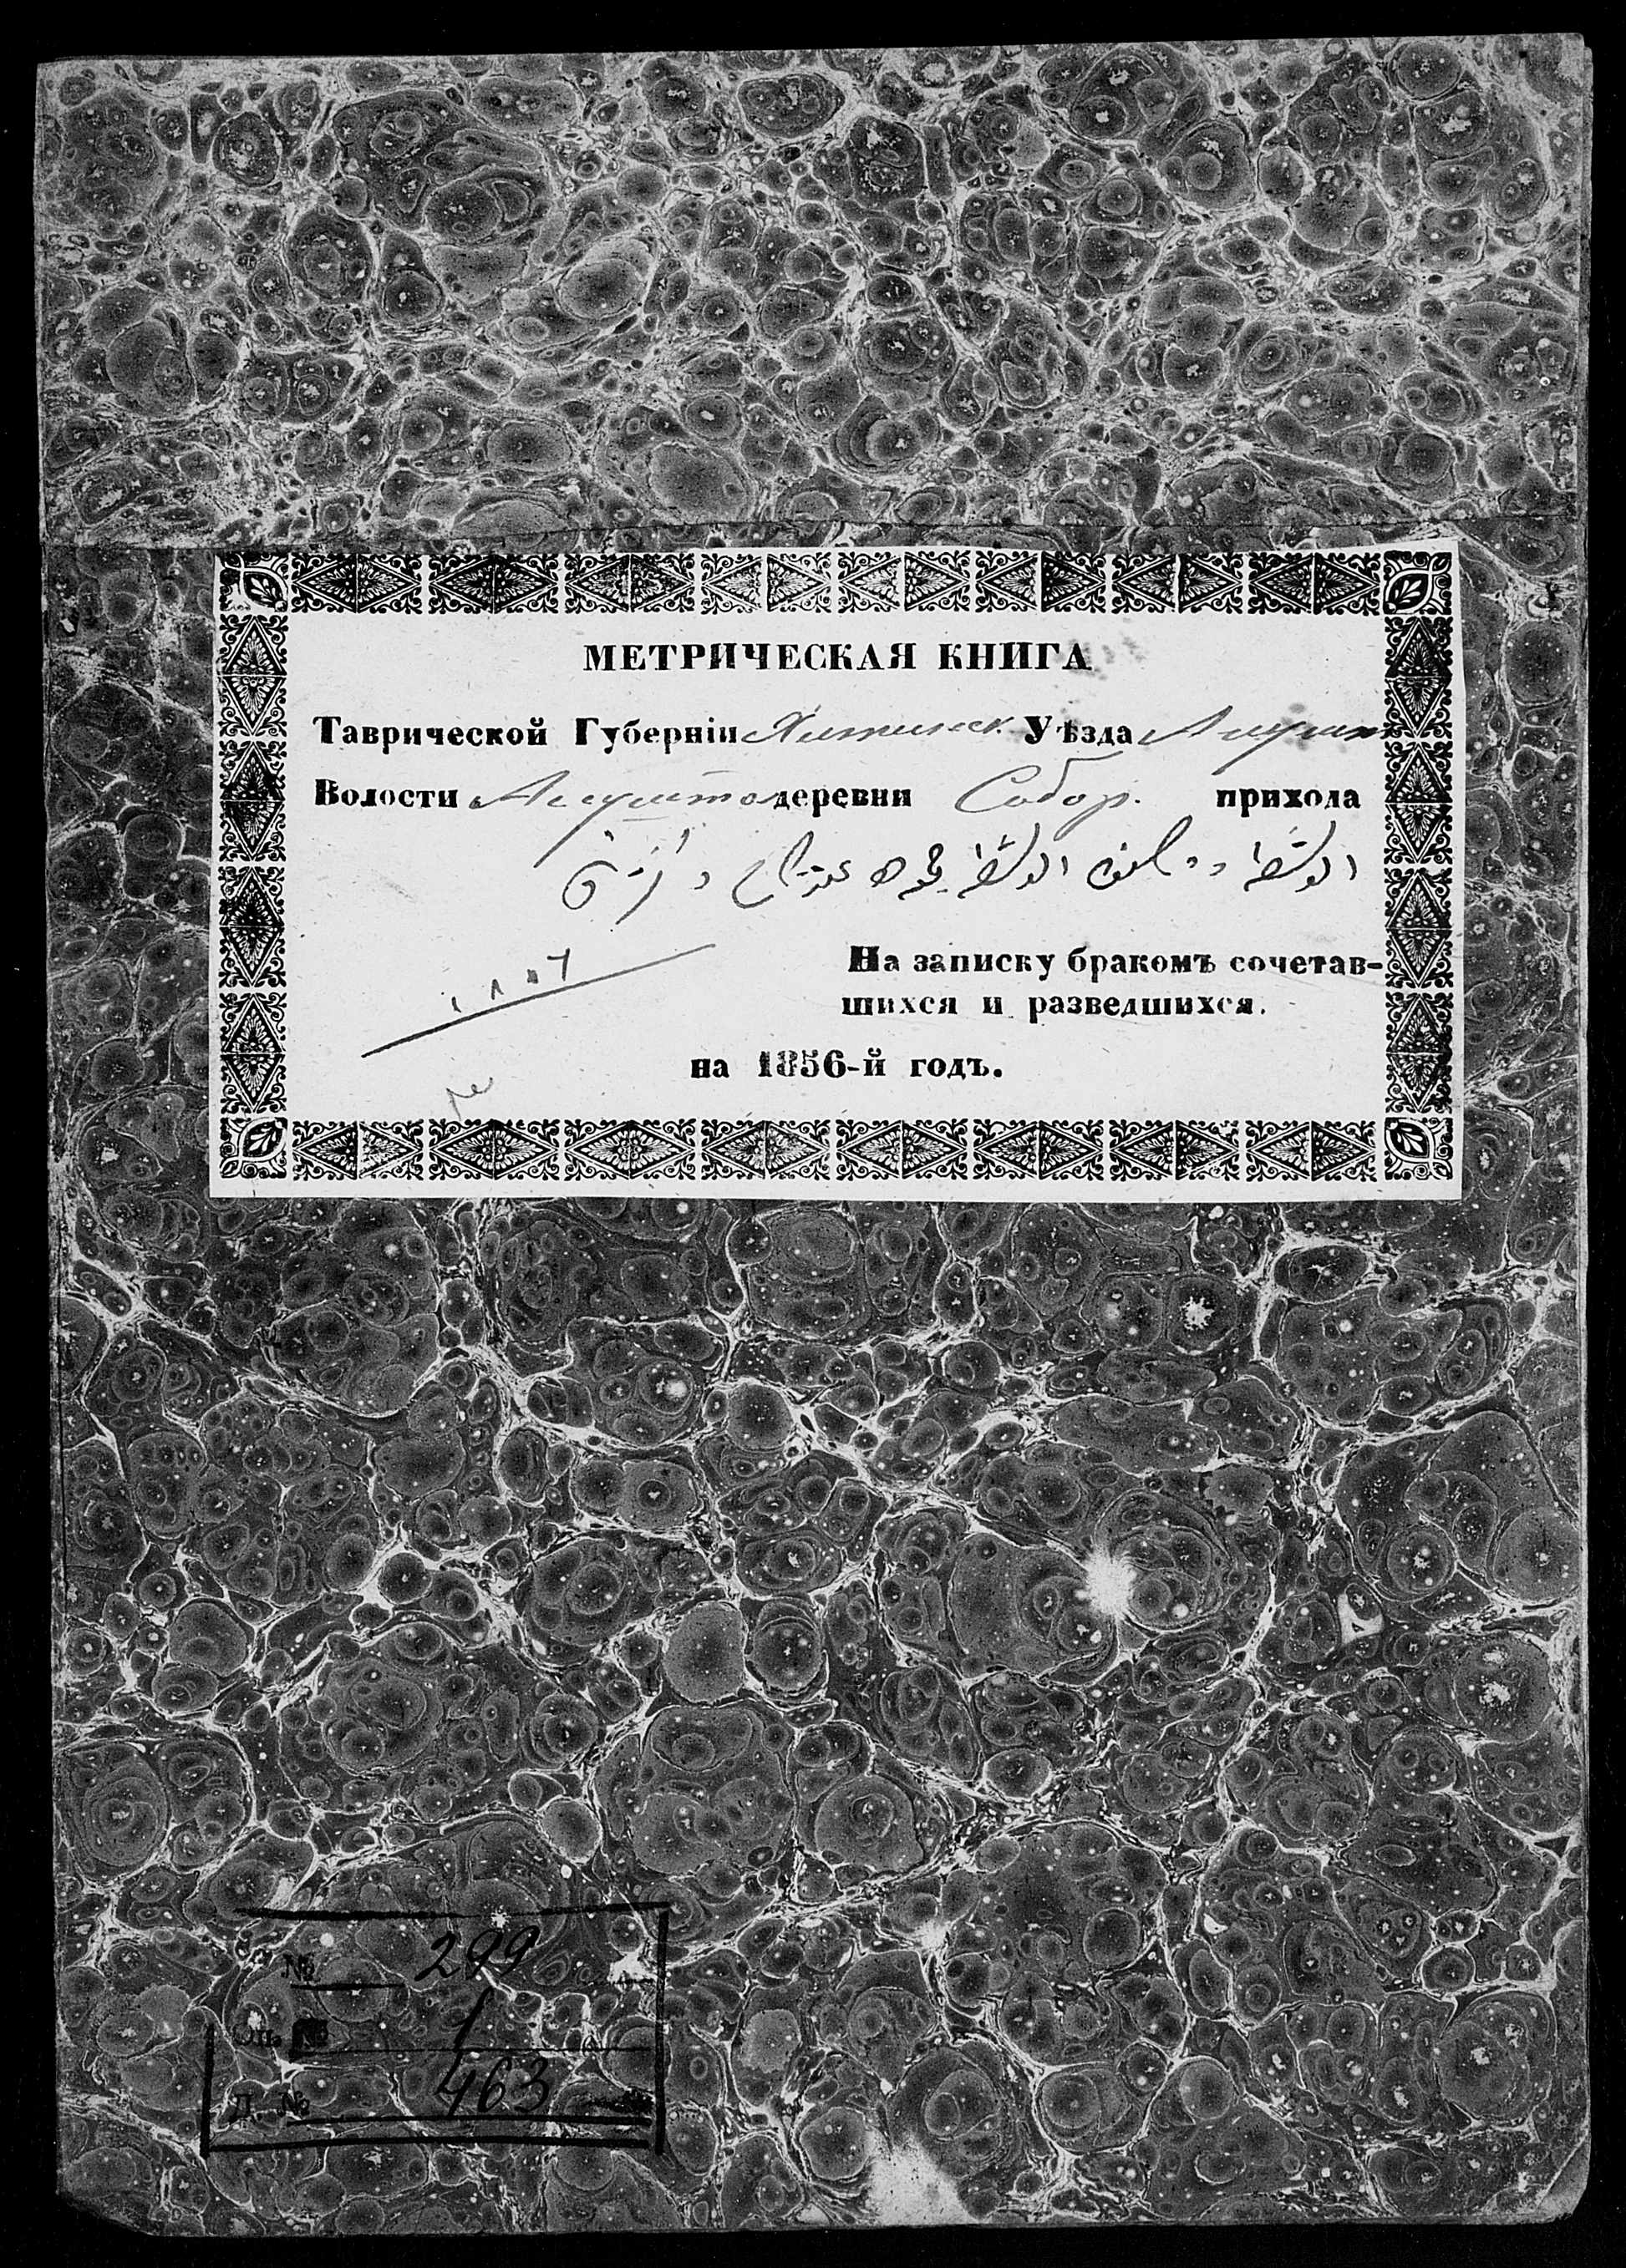 МЕТРИЧЕСКАЯ КНИГА
Таврической Губерніи Ялтинск. Уѣзда Алушт
Волости Алушта деревни Собор. прихода
На записку бракомъ сочетав-
шихся и разведшихся.
١٨٥٦
на 1856-й годъ.
№ 299
Оп. № 1
Д. № 463